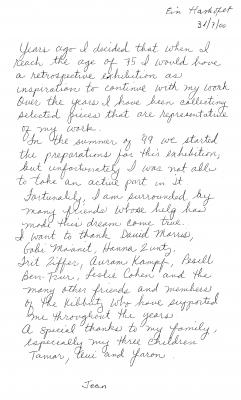 Ein Hashofet
31/7/00
Years ago I decided that when I
reach the age of 75 I would have
a retrospective exhibition as
inspiration to continue with my work
Over the years I have been collecting
selected pieces that are representative
of my work.
In the summer of '99 we started
the preparations for this exhibition,
but unfortunately I was not able
to take an active part in it
Fortunately, I am surrounded by
many friends whose help has
made this dream come true.
I want to thank David Morris,
Gabi Maanit, Hanna Zuntz,
Irit Ziffer, Avram Kampf, Pesill
Ben-Purr, Leslie Cohen and the
many other friends and members
of the Kibbutz who have supported
me throughout the years
A special thanks to my family,
especially my three children
Tamar, and Yaron.
Jean